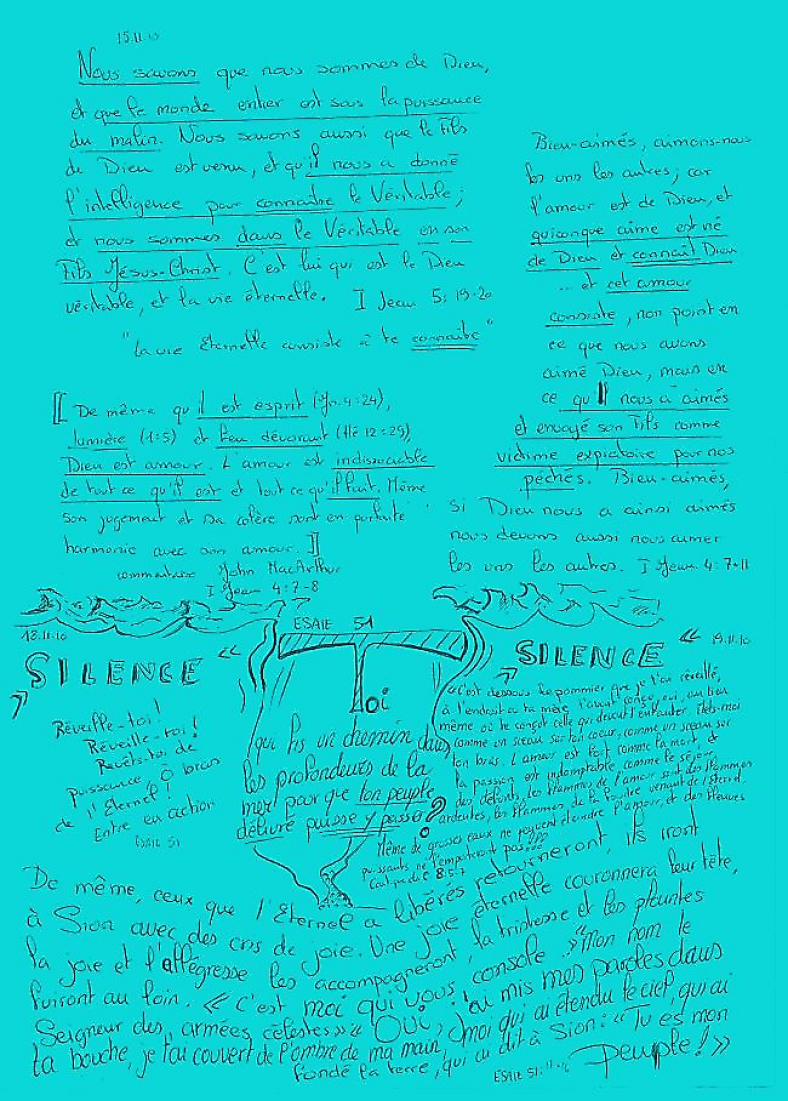 15.11.10
Nous savons que nous sommes de Dieu,
et que le monde entier est sous la puissance
du malin. Nous savons aussi que le Fils
de Dieu est venu, et qu'il nous a donné
l'intelligence pour connaître le Véritable ;
et nous sommes dans le Véritable en son
Fils Jésus-Christ. C'est lui qui est le Dieu
véritable, et la vie éternelle. I Jean 5: 19-20
"La vie Eternelle consiste à te connaître"
[[ De même qu'il est esprit (Jn.4:24),
lumière (1:5) et feu dévorant (Hé 12:29),
Dieu est amour. L'amour est indissociable
de tout ce qu'il est et tout ce qu'il fait. Même
son jugement et sa colère sont en parfaite
harmonie avec son amour. ]]
commentaire John MacArthur
I Jean 4:7-8
Bien-aimés, aimons-nous
les uns les autres ; car
l'amour est de Dieu, et
quiconque aime est né
de Dieu et connaît Dieu
... et cet amour
consiste, non point en
ce que nous avons
aimé Dieu, mais en
ce qu'Il nous a aimés
et envoyé son Fils comme
victime expiatoire pour nos
péchés. Bien-aimés,
si Dieu nous a ainsi aimés
nous devons aussi nous aimer
les uns les autres. I Jean 4:7-11
18.11.10
SILENCE «
»
Réveille-toi !
Réveille-toi !
Revêts-toi de
puissance, Ô bras
de l'Eternel !
Entre en action
Esaïe 51
ESAIE 51
Toi
qui fis un chemin dans
les profondeurs de la
mer pour que ton peuple
délivré puisse y passer ?
« 19.11.10
SILENCE
»
«C'est dessous le pommier que je t'ai réveillé,
à l'endroit où ta mère t'avait conçu, oui, au lieu
même où te conçut celle qui devait t'enfanter. Mets-moi
comme un sceau sur ton coeur, comme un sceau sur
ton bras. L'amour est fort comme la mort, et
la passion est indomptable comme le séjour
des défunts, les flammes de l'amour sont des flammes
ardentes, les flammes de la foudre venant de l'Eternel.
Même de grosses eaux ne peuvent éteindre l'amour, et des fleuves
puissants ne l'emporteront pas...»
Cantique de C 8.5-7
De même, ceux que l'Eternel a libérés retourneront, ils iront
à Sion avec des cris de joie. Une joie éternelle couronnera leur tête,
la joie et l'allégresse les accompagneront, la tristesse et les plaintes
fuiront au loin. « C'est moi qui vous console ..» "Mon nom le
Seigneur des armées célestes»» "OUI, j'ai mis mes paroles dans
ta bouche, je t'ai couvert de l'ombre de ma main, moi qui ai étendu le ciel, qui ai
fondé la terre, qui ai dit à Sion : «Tu es mon
Peuple ! »
ESAIE 51:11-16